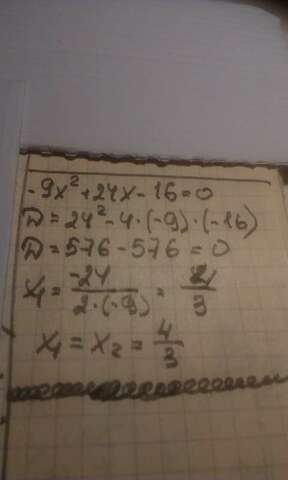 -9x²+24x-16=0
D=24²-4·(-9)·(-16)
D=576-576=0
x₁=-24/2·(-9)=4/3
x₁=x₂=4/3